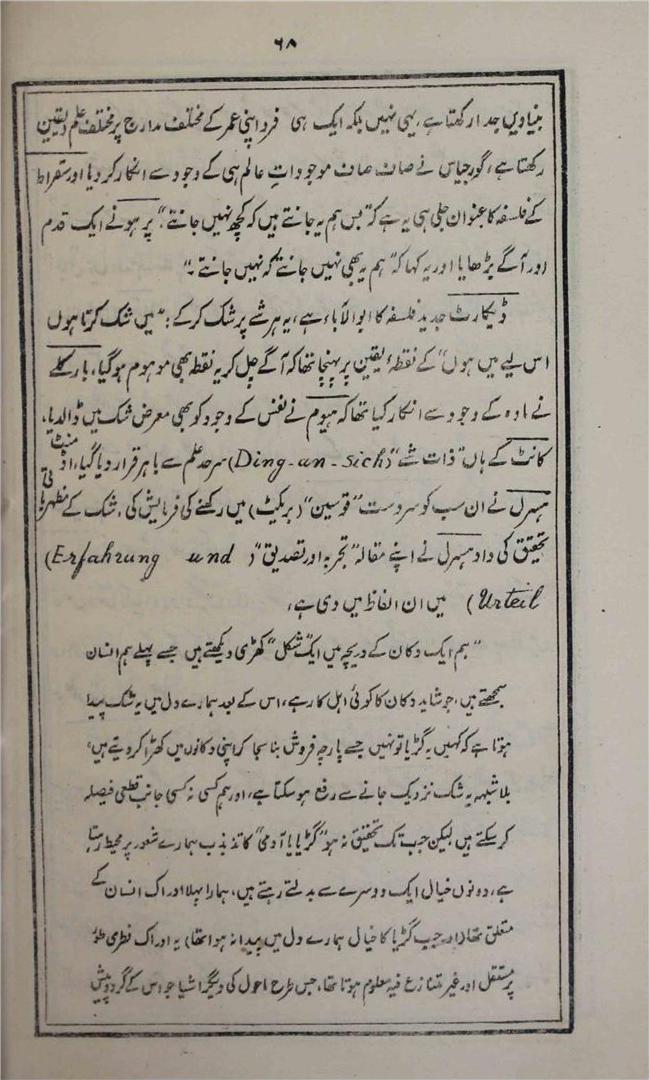 ۶۸
بنیادیں جدا رکھتا ہے، یہی نہیں بلکہ ایک ہی فرد اپنی عمر کے مختلف مدارج پر مختلف علم و یقین
رکھتا ہے، گورجیاس نے صاف صاف موجوداتِ عالم ہی کے وجود سے انکار کر دیا اور سقراط
کے فلسفہ کا عنوان جلی ہی یہ ہے کہ "بس ہم یہ جانتے ہیں کہ کچھ نہیں جانتے"، پرہو نے ایک قدم
اور آگے بڑھایا اور یہ کہا کہ "ہم یہ بھی نہیں جانتے کہ نہیں جانتے"۔
ڈیکارٹ جدید فلسفہ کا ابو الآباء ہے، یہ ہر شے پر شک کر کے: "میں شک کرتا ہوں
اس لیے میں ہوں" کے نقطۂ یقین پر پہنچا تھا کہ آگے چل کر یہ نقطہ بھی موہوم ہو گیا، بارکلے
نے مادہ کے وجود سے انکار کیا تھا کہ ہیوم نے نفس کے وجود کو بھی معرض شک میں ڈالدیا،
کانٹ کے ہاں "ذات شے" (Ding-an-sich) سرحد علم سے باہر قرار دیا گیا، اڈمنٹ
ہسرل نے ان سب کو سردست "قوسین" (بریکٹ) میں رکھنے کی فرمایش کی، شک کے مظہریاتی
تحقیق کی داد ہسرل نے اپنے مقالہ "تجربہ اور تصدیق" (Erfahrung und
Urteil) میں ان الفاظ میں دی ہے،
"ہم ایک دکان کے دریچہ میں ایک "شکل" کھڑی دیکھتے ہیں جسے پہلے ہم انسان
سمجھتے ہیں، جو شاید دکان کا کوئی اہل کار ہے، اس کے بعد ہمارے دل میں یہ شک پیدا
ہوتا ہے کہ کہیں یہ گڑیا تو نہیں جسے پارچہ فروش بنا سجا کر اپنی دکانوں میں کھڑا کر دیتے ہیں،
بلا شبہہ یہ شک نزدیک جانے سے رفع ہو سکتا ہے، اور ہم کسی نہ کسی جانب قطعی فیصلہ
کر سکتے ہیں لیکن جب تک تحقیق نہ ہو "گڑیا یا آدمی" کا تذبذب ہمارے شعور پر محیط رہتا
ہے، دونوں خیال ایک دوسرے سے بدلتے رہتے ہیں، ہمارا پہلا ادراک انسان کے
متعلق تھا (اور جب گڑیا کا خیال ہمارے دل میں پیدا نہ ہوا تھا) یہ ادراک فطری طور
پر مستقل اور غیر متنازع فیہ معلوم ہوتا تھا، جس طرح احول کی دیگر اشیا جو اس کے گرد و پیش